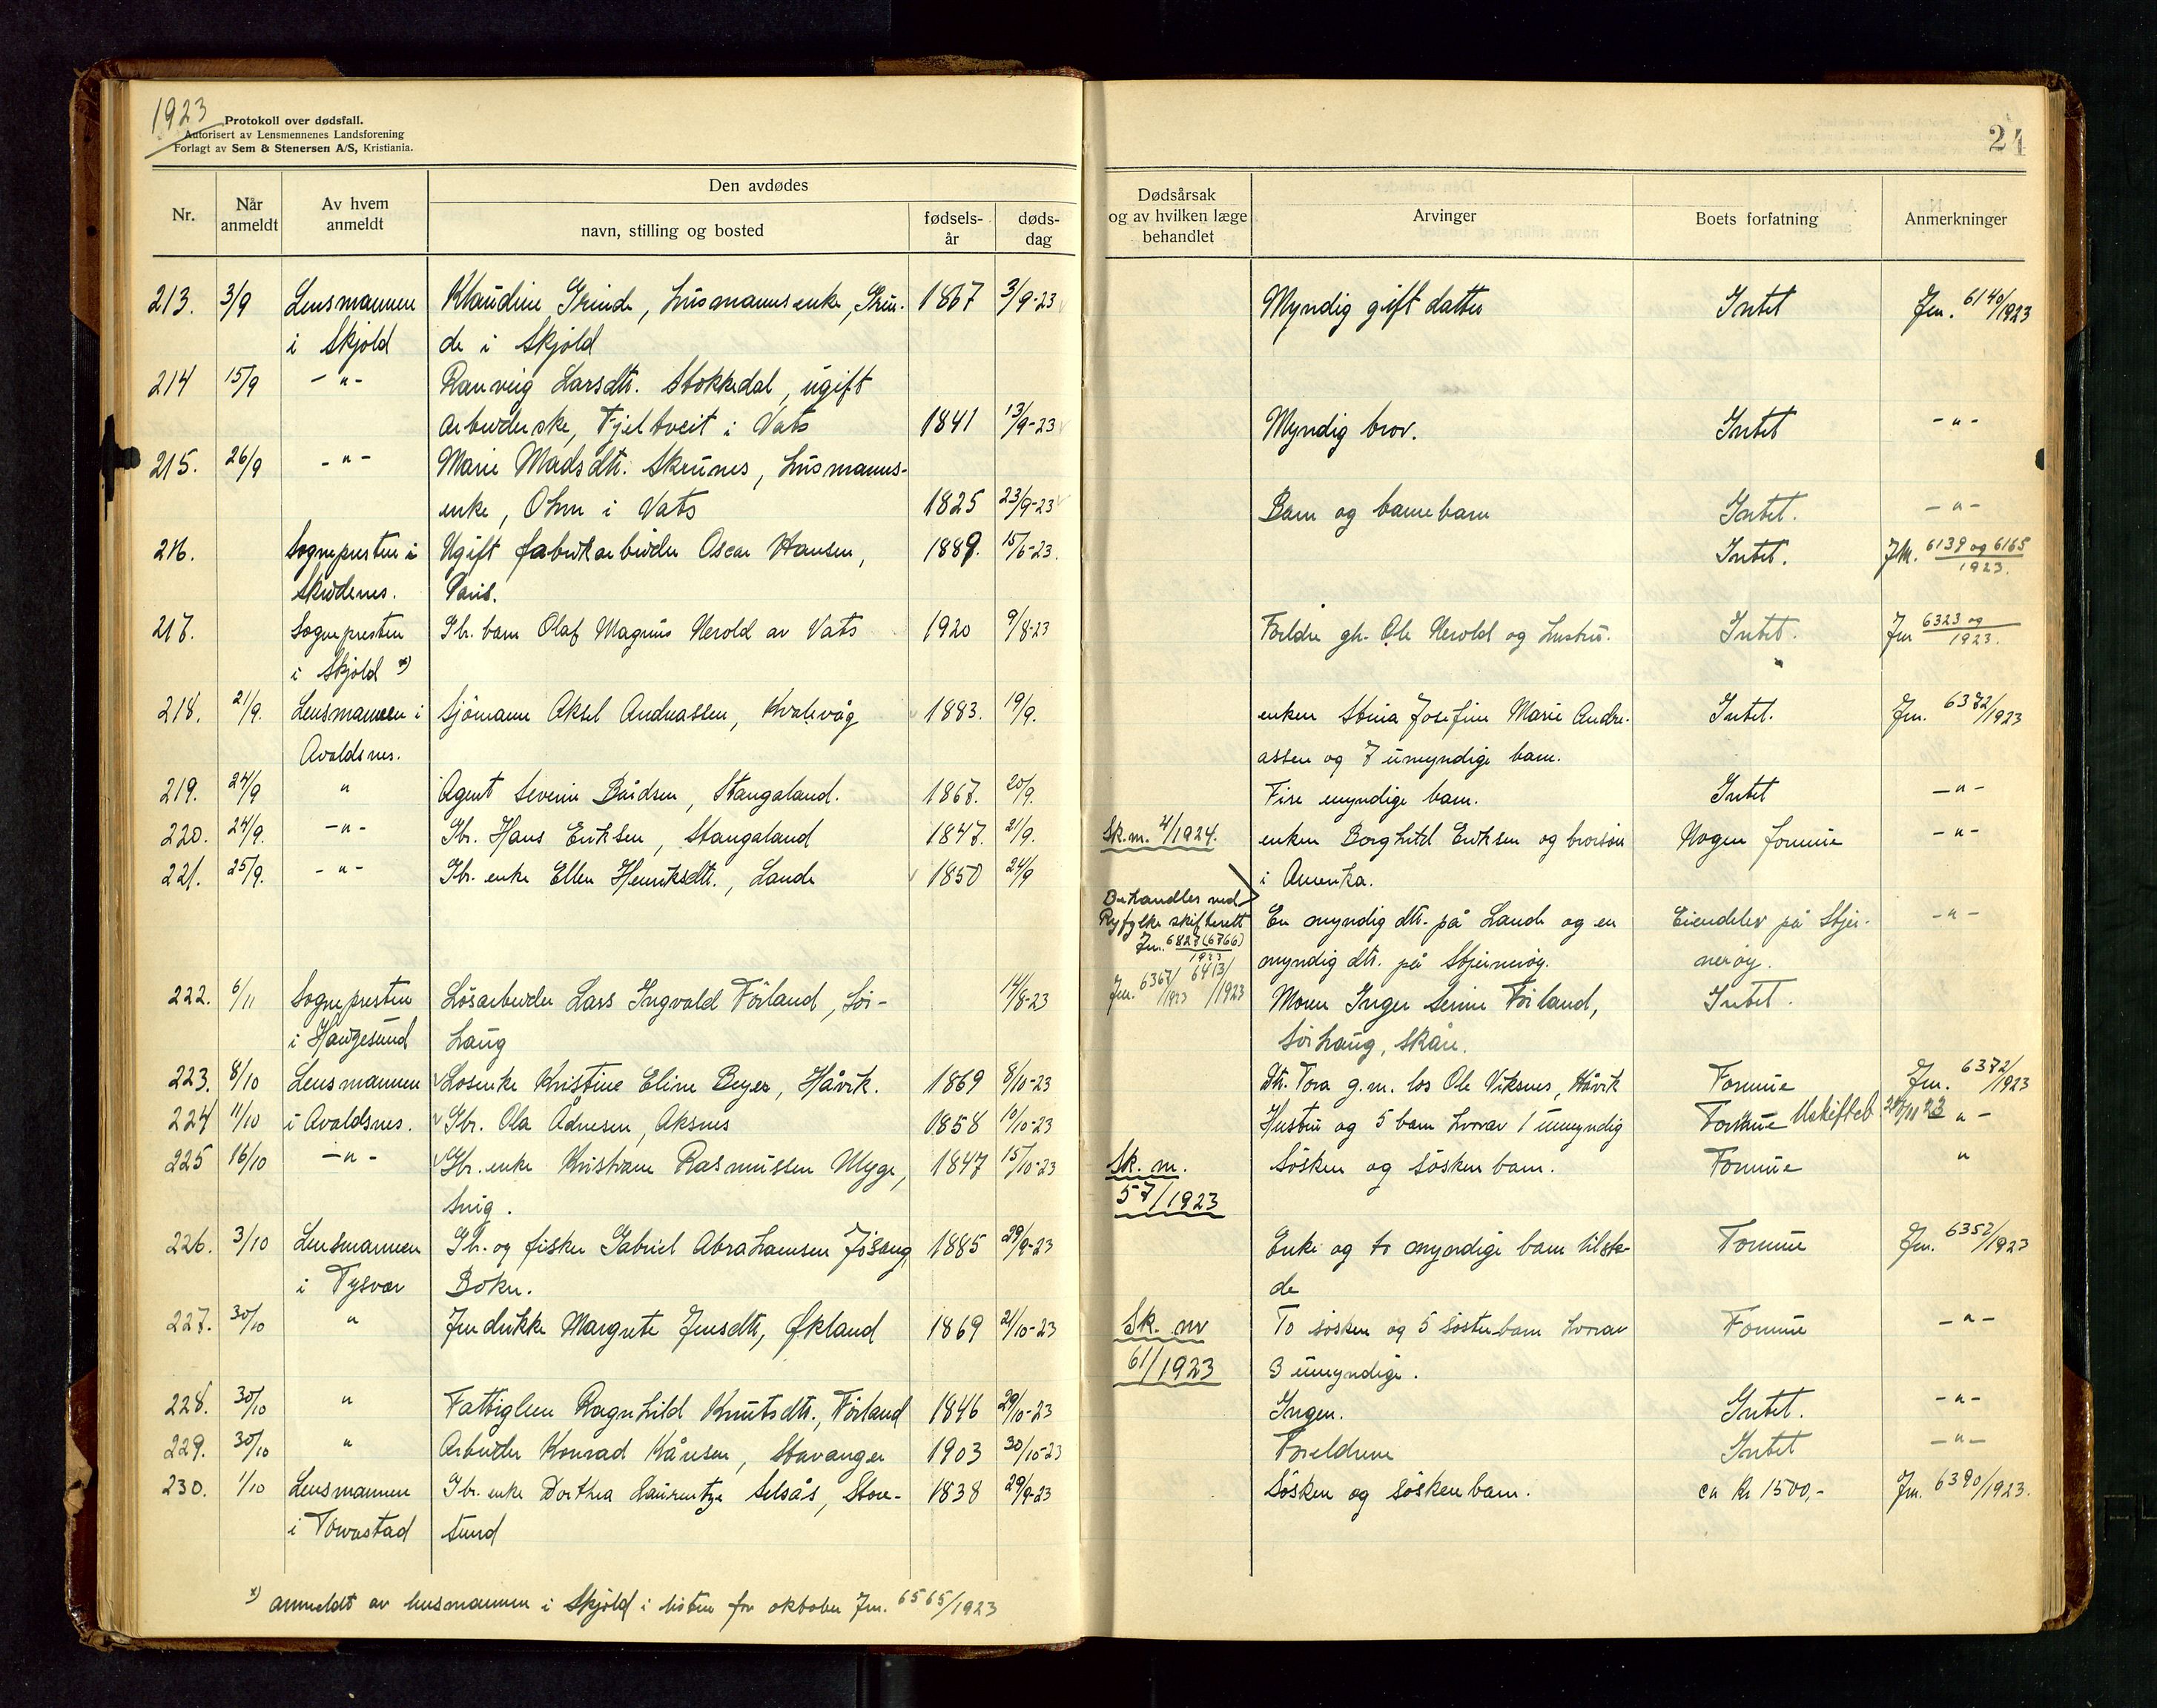 1923
Protokoll over dødsfall.
Autorisert av Lensmennenes Landsforening
Forlagt av Sem & Stenersen A/S, Kristiania.
24
Nr. Når anmeldt Av hvem anmeldt Den avdødes navn, stilling og bosted fødselsår dødsdag Dødsårsak og av hvilken læge behandlet Arvinger Boets forfatning Anmerkninger
213. 3/9 Lensmannen Klaudine Grinde, husmannsenke, Grin- 1867 3/9-23 Myndig gift datter Intet Jnr. 6140/1923
i Skjold de i Skjold
214 15/9 -"- Ranveig Larsdtr. Stokkedal, ugift
arbeiderske, Fjeltveit i Vats 1841 13/9-23 Myndig bror. Intet -"-
215. 26/9 -"- Marie Madsdtr. Skeunes, husmanns-
enke, Ohm i Vats 1825 23/9-23 Barn og barnebarn Intet. -"-
216. Sognepresten i Ugift fabrikarbeider Oscar Hansen, 1889. 15/6-23. Intet. Jnr. 6139 og 6165/1923.
Skudenes. Paris.
217. Sognepresten Gbr. barn Olaf Magnus Nerold av Vats 1920 9/8-23 Foreldre gbr. Ole Nerold og hustru. Intet. Jnr 6323 og/1923.
i Skjold x)
218. 21/9. Lensmannen i Sjömann Aksel Andreassen, Kvalevåg 1883. 19/9. enken Stina Josefine Marie Andre- Intet. Jnr. 6372/1923
Avaldsnes. assen og 7 umyndige barn.
219. 24/9 " Agent Severin Bårdsen, Stangaland. 1867. 20/9. Fire myndige barn. Intet -"-
220. 24/9. -"- Gbr. Hans Eriksen, Stangaland 1847. 21/9. Sk.m. 4/1924. enken Borghild Eriksen og brorsön Nogen formue -"-
221. 25/9. -"- Gbr. enke Ellen Henriksdtr., Lande 1850 24/9 i Amerika.
Behandles ved
Ryfylke skifterett En myndig dtr. på Lande og en Eiendeler på Stjer- -"-
Jnr. 6827(6766)/1923 myndig dtr. på Stjernerøy. nerøy.
222. 6/11 Sognepresten Lösarbeider Lars Ingvald Förland, Sör- 14/8-23 Jnr. 6367/1923 6413/1923 Moren Inger Serine Förland, Intet.
i Haugesund haug Sörhaug, Skåre.
223. 8/10 Lensmannen Losenke Kristine Eline Beyer, Håvik. 1869 8/10-23 Dtr. Tora g.m. los Ole Viksnes, Håvik Formue Jnr. 6372/1923
224 11/10 i Avaldsnes. Gbr. Ola Ådnesen, Aksnes 1858 10/10-23 Hustru og 5 barn hvorav 1 umyndig Formue Uskiftet 20/11 23 " -
225 16/10 -"- Gbr. enke Kristiane Rasmussen Mygge, 1847 15/10-23 Sk. m. Sösken og söskenbarn. Formue "
Snig. 57/1923
226. 3/10 Lensmannen Gbr. og fisker Gabriel Abrahamsen Jösang, 1885 29/9-23 Enke og to myndige barn tilste- Formue Jnr. 6352/1923
i Tysvær Bokn. de
227. 30/10 " Fredrikke Margrete Jensdtr, Økland 1869 21/10-23 Sk. nr To sösken og 5 sösterbarn hvorav Formue -"-
61/1923 3 umyndige.
228. 30/10 " Fattiglem Ragnhild Knutsdtr., Förland 1846 29/10-23 Ingen. Intet. -"-
229. 30/10 " Arbeider Konrad Kåresen, Stavanger 1903 30/10-23 Foreldrene Intet -"-
230. 1/10 Lensmannen Gbr. enke Dorthea Laurentze Selsås, Store- 1838 29/9-23 Sösken og söskenbarn. ca kr 1500,- Jnr. 6390/1923.
i Torvastad sund
x) anmeldt av lensmannen i Skjold i listen for oktober Jnr. 6565/1923